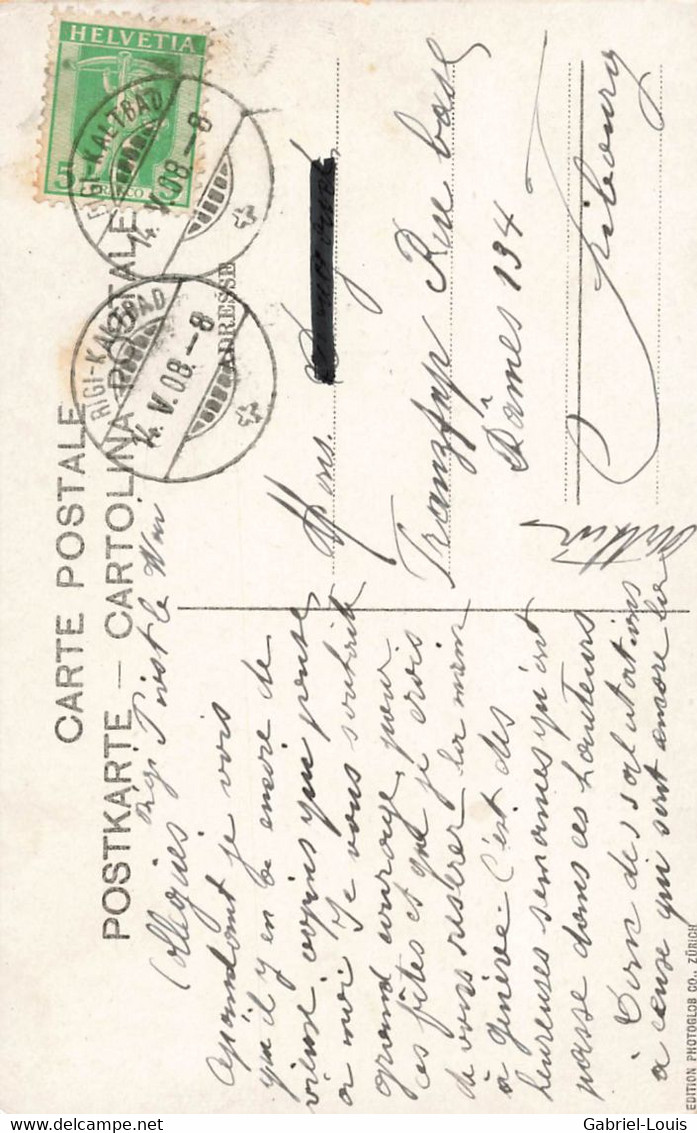 HELVETIA
5
FRANCO
RIGI-KALTBAD
14. V. 08.–8
RIGI-KALTBAD
14. V. 08.–8
CARTE POSTALE
POSTKARTE – CARTOLINA POSTALE
ADRESSE
Mons.
Rue base
Dâmes 134
Fribourg
Rigi First le
Collegues
je vois
qu'il y en a encore de
vieux copins que pense
a moi Je vous souhaite
grand courage, pour
ces fêtes et que je crois
de vous reserer la main
à genève. C'est des
heureuses semaines qu'ont
passe dans ces hauteurs
Bien des salutations
à ceuse qui sont encore la
EDITION PHOTOGLOB CO., ZÜRICH
Gabriel-Louis